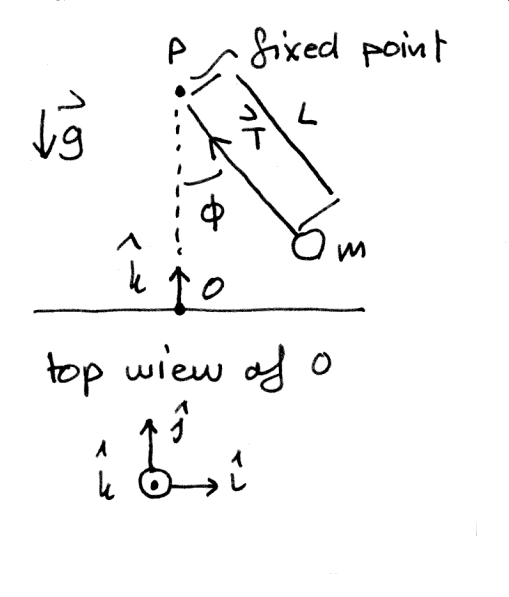 P fixed point
g⃗
T⃗ L
ϕ
m
k̂ O
top view of O
ĵ
k̂ î